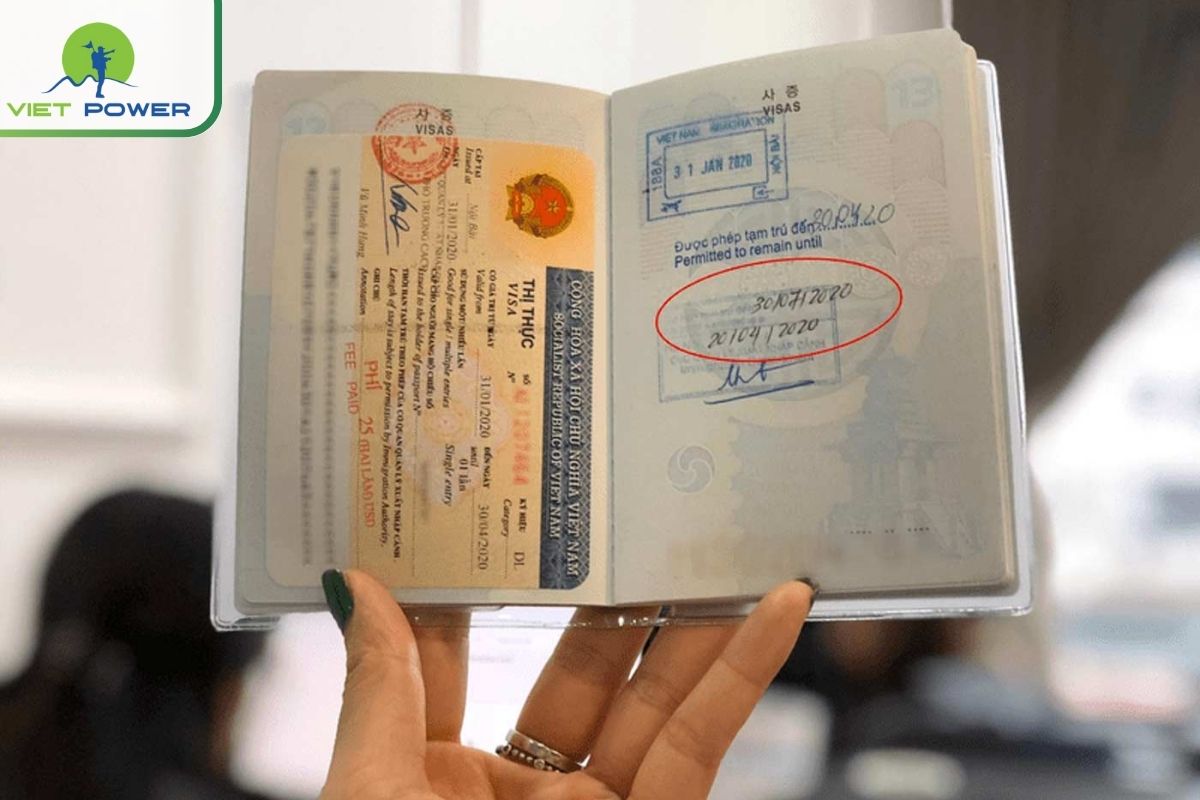 VIET POWER
사 증
VISAS
CỘNG HÒA XÃ HỘI CHỦ NGHĨA VIỆT NAM
SOCIALIST REPUBLIC OF VIET NAM
THỊ THỰC
VISA
SỐ
Nº
KÝ HIỆU DL
Category
CÓ GIÁ TRỊ TỪ NGÀY 31/01/2020 ĐẾN NGÀY 30/04/2020
Valid from until
SỬ DỤNG MỘT/NHIỀU LẦN 01 lần
Good for single / multiple entries Single entry
CẤP CHO NGƯỜI MANG HỘ CHIẾU SỐ
Issued to the holder of passport Nº
THỜI HẠN TẠM TRÚ THEO PHÉP CỦA CƠ QUAN QUẢN LÝ XUẤT NHẬP CẢNH.
Length of stay is subject to permission by Immigration Authority.
GHI CHÚ
Annotation
PHÍ 25 (HAI LĂM) USD
FEE PAID
CẤP TẠI Nội Bài
Issued at
NGÀY 31/01/2020
사 증
VISAS
VIET NAM IMMIGRATION
188A
31 JAN 2020
NỘI BÀI
Được phép tạm trú đến 30.04.20
Permitted to remain until
30/07/2020
20/04/2020